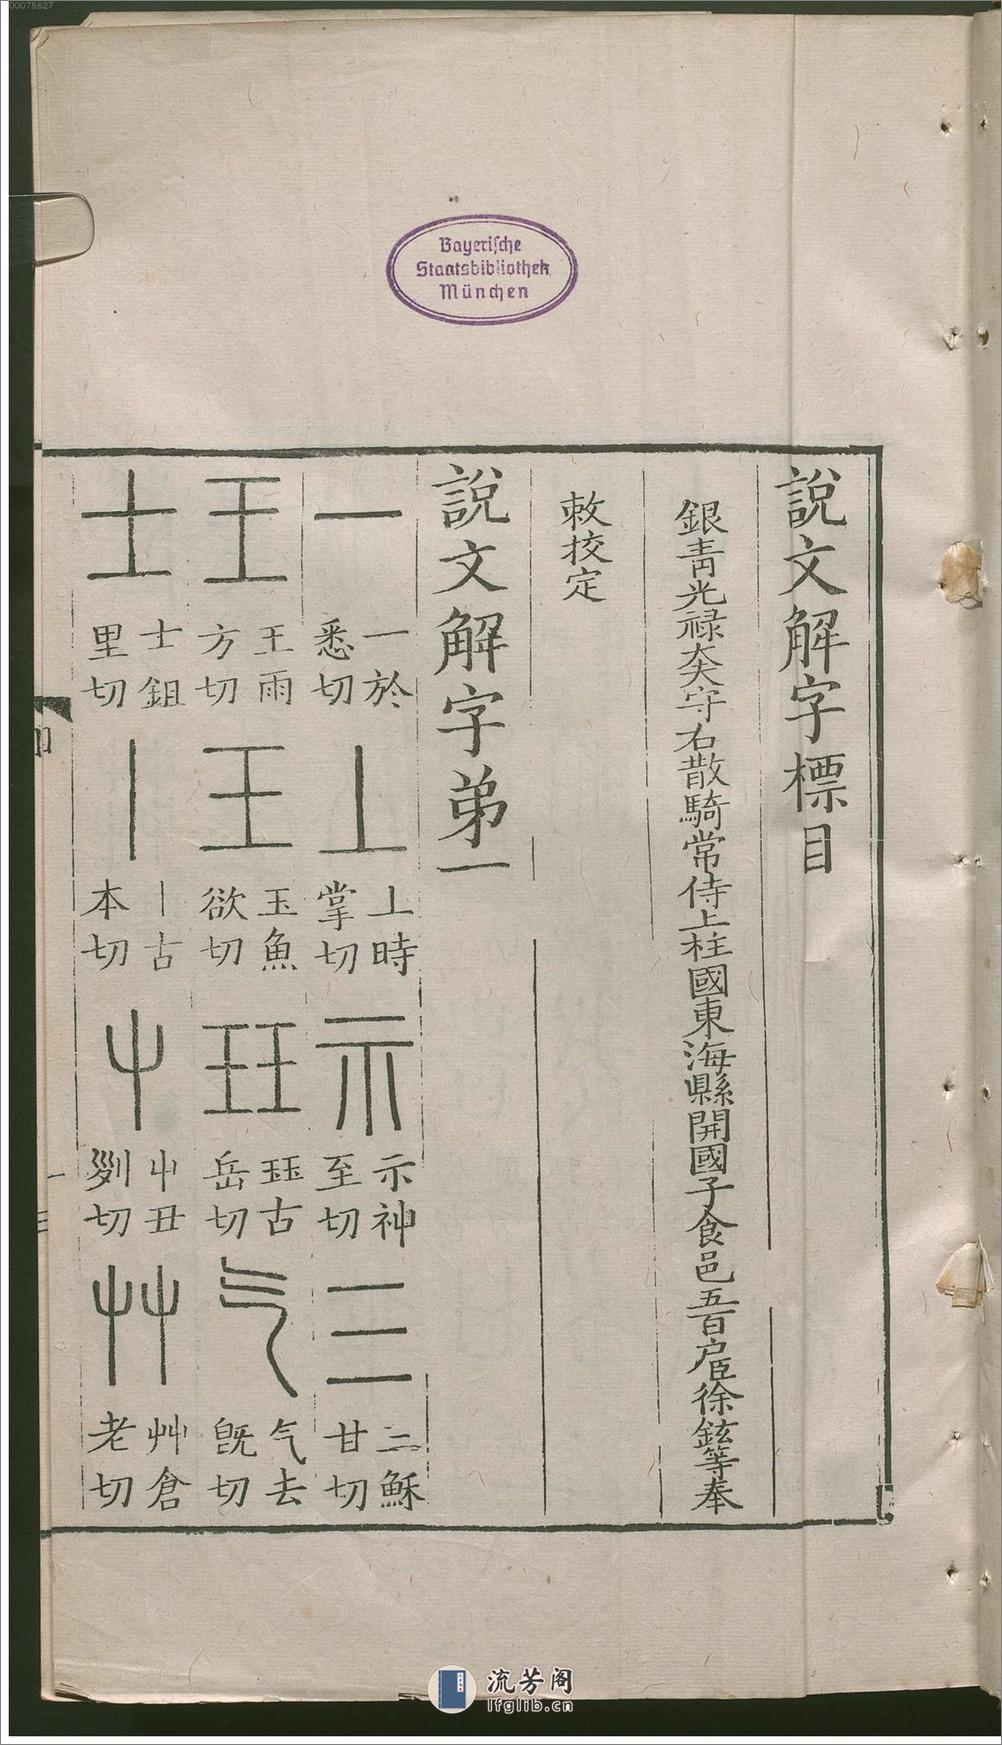 00075627
Bayerische
Staatsbibliothek
München
說文解字標目
銀青光祿大夫守右散騎常侍上柱國東海縣開國子食邑五百户臣徐鉉等奉
敕挍定
說文解字弟一
一 一於悉切 丄 丄時掌切 示 示神至切 三 三穌甘切
王 王雨方切 王 玉魚欲切 玨 玨古岳切 气 气去旣切
士 士鉏里切 丨 丨古本切 屮 屮丑列切 艸 艸倉老切
流芳阁
lfglib.cn